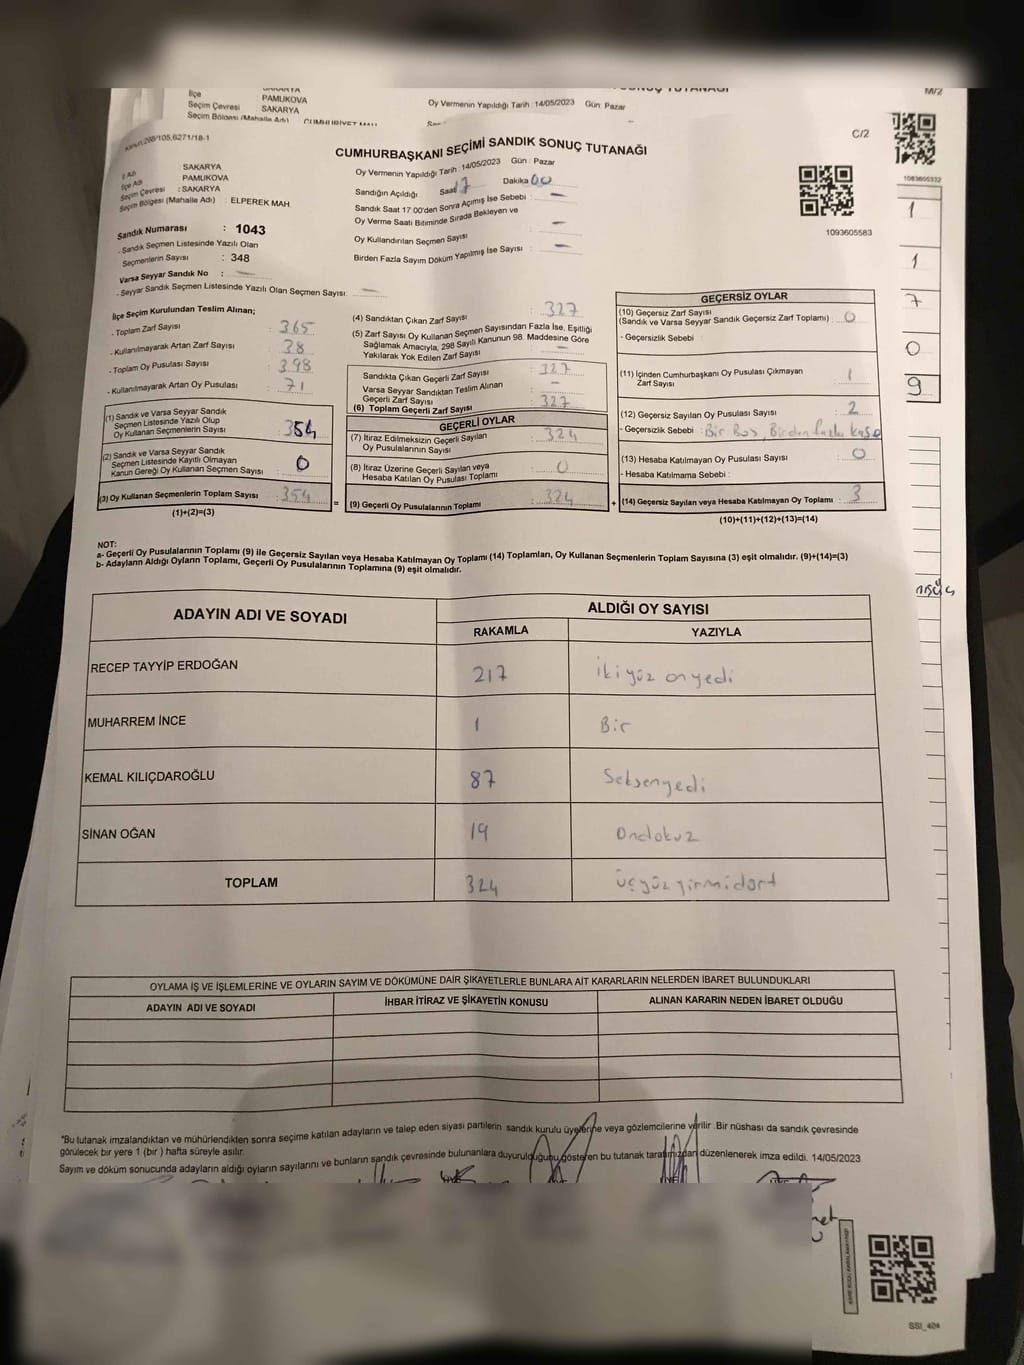 SAKARYA
İlçe PAMUKOVA
Seçim Çevresi : SAKARYA
Seçim Bölgesi (Mahalle Adı) : CUMHURİYET MAH.
Oy Vermenin Yapıldığı Tarih :14/05/2023 Gün: Pazar
SONUÇ TUTANAĞI
M/2
1083605332
Kanun:298/105,6271/18-1
C/2
CUMHURBAŞKANI SEÇİMİ SANDIK SONUÇ TUTANAĞI
İl Adı SAKARYA
İlçe Adı PAMUKOVA
Seçim Çevresi : SAKARYA
Seçim Bölgesi (Mahalle Adı) : ELPEREK MAH.
Sandık Numarası : 1043
- Sandık Seçmen Listesinde Yazılı Olan
Seçmenlerin Sayısı : 348
Varsa Seyyar Sandık No : —
- Seyyar Sandık Seçmen Listesinde Yazılı Olan Seçmen Sayısı: —
Oy Vermenin Yapıldığı Tarih :14/05/2023 Gün : Pazar
Sandığın Açıldığı Saat 17 Dakika 00
Sandık Saat 17:00'den Sonra Açımış İse Sebebi : —
Oy Verme Saati Bitiminde Sırada Bekleyen ve
Oy Kullandırılan Seçmen Sayısı : —
Birden Fazla Sayım Döküm Yapılmış İse Sayısı : —
1093605583
1
1
7
0
9
İlçe Seçim Kurulundan Teslim Alınan;
- Toplam Zarf Sayısı : 365
- Kullanılmayarak Artan Zarf Sayısı : 38
- Toplam Oy Pusulası Sayısı : 398
- Kullanılmayarak Artan Oy Pusulası : 71
(1) Sandık ve Varsa Seyyar Sandık
Seçmen Listesinde Yazılı Olup
Oy Kullanan Seçmenlerin Sayısı : 354
(2) Sandık ve Varsa Seyyar Sandık
Seçmen Listesinde Kayıtlı Olmayan
Kanun Gereği Oy Kullanan Seçmen Sayısı : 0
(3) Oy Kullanan Seçmenlerin Toplam Sayısı : 354
(1)+(2)=(3)
=
(4) Sandıktan Çıkan Zarf Sayısı : 327
(5) Zarf Sayısı Oy Kullanan Seçmen Sayısından Fazla İse, Eşitliği
Sağlamak Amacıyla, 298 Sayılı Kanunun 98. Maddesine Göre
Yakılarak Yok Edilen Zarf Sayısı : —
Sandıkta Çıkan Geçerli Zarf Sayısı : 327
Varsa Seyyar Sandıktan Teslim Alınan
Geçerli Zarf Sayısı : —
(6) Toplam Geçerli Zarf Sayısı : 327
GEÇERLİ OYLAR
(7) İtiraz Edilmeksizin Geçerli Sayılan
Oy Pusulasının Sayısı : 324
(8) İtiraz Üzerine Geçerli Sayılan veya
Hesaba Katılan Oy Pusulası Toplamı : 0
(9) Geçerli Oy Pusulalarının Toplamı : 324
+
GEÇERSİZ OYLAR
(10) Geçersiz Zarf Sayısı
(Sandık ve Varsa Seyyar Sandık Geçersiz Zarf Toplamı) : 0
- Geçersizlik Sebebi :
(11) İçinden Cumhurbaşkanı Oy Pusulası Çıkmayan
Zarf Sayısı : 1
(12) Geçersiz Sayılan Oy Pusulası Sayısı : 2
- Geçersizlik Sebebi : Bir Boş, Birden fazla kaşe
(13) Hesaba Katılmayan Oy Pusulası Sayısı : 0
- Hesaba Katılmama Sebebi :
(14) Geçersiz Sayılan veya Hesaba Katılmayan Oy Toplamı : 3
(10)+(11)+(12)+(13)=(14)
NOT:
a- Geçerli Oy Pusulalarının Toplamı (9) ile Geçersiz Sayılan veya Hesaba Katılmayan Oy Toplamı (14) Toplamları, Oy Kullanan Seçmenlerin Toplam Sayısına (3) eşit olmalıdır. (9)+(14)=(3)
b- Adayların Aldığı Oyların Toplamı, Geçerli Oy Pusulalarının Toplamına (9) eşit olmalıdır.
ADAYIN ADI VE SOYADI
ALDIĞI OY SAYISI
RAKAMLA YAZIYLA
RECEP TAYYİP ERDOĞAN 217 İkiyüz onyedi
MUHARREM İNCE 1 Bir
KEMAL KILIÇDAROĞLU 87 Seksenyedi
SİNAN OĞAN 19 Ondokuz
TOPLAM 324 üçyüzyirmidört
OYLAMA İŞ VE İŞLEMLERİNE VE OYLARIN SAYIM VE DÖKÜMÜNE DAİR ŞİKAYETLERLE BUNLARA AİT KARARLARIN NELERDEN İBARET BULUNDUKLARI
ADAYIN ADI VE SOYADI İHBAR İTİRAZ VE ŞİKAYETİN KONUSU ALINAN KARARIN NEDEN İBARET OLDUĞU
*Bu tutanak imzalandıktan ve mühürlendikten sonra seçime katılan adayların ve talep eden siyasi partilerin sandık kurulu üyelerine veya gözlemcilerine verilir. Bir nüshası da sandık çevresinde
görülecek bir yere 1 (bir ) hafta süreyle asılır.
Sayım ve döküm sonucunda adayların aldığı oyların sayılarını ve bunların sandık çevresinde bulunanlara duyurulduğunu gösteren bu tutanak tarafımızdan düzenlenerek imza edildi. 14/05/2023
SSI_404